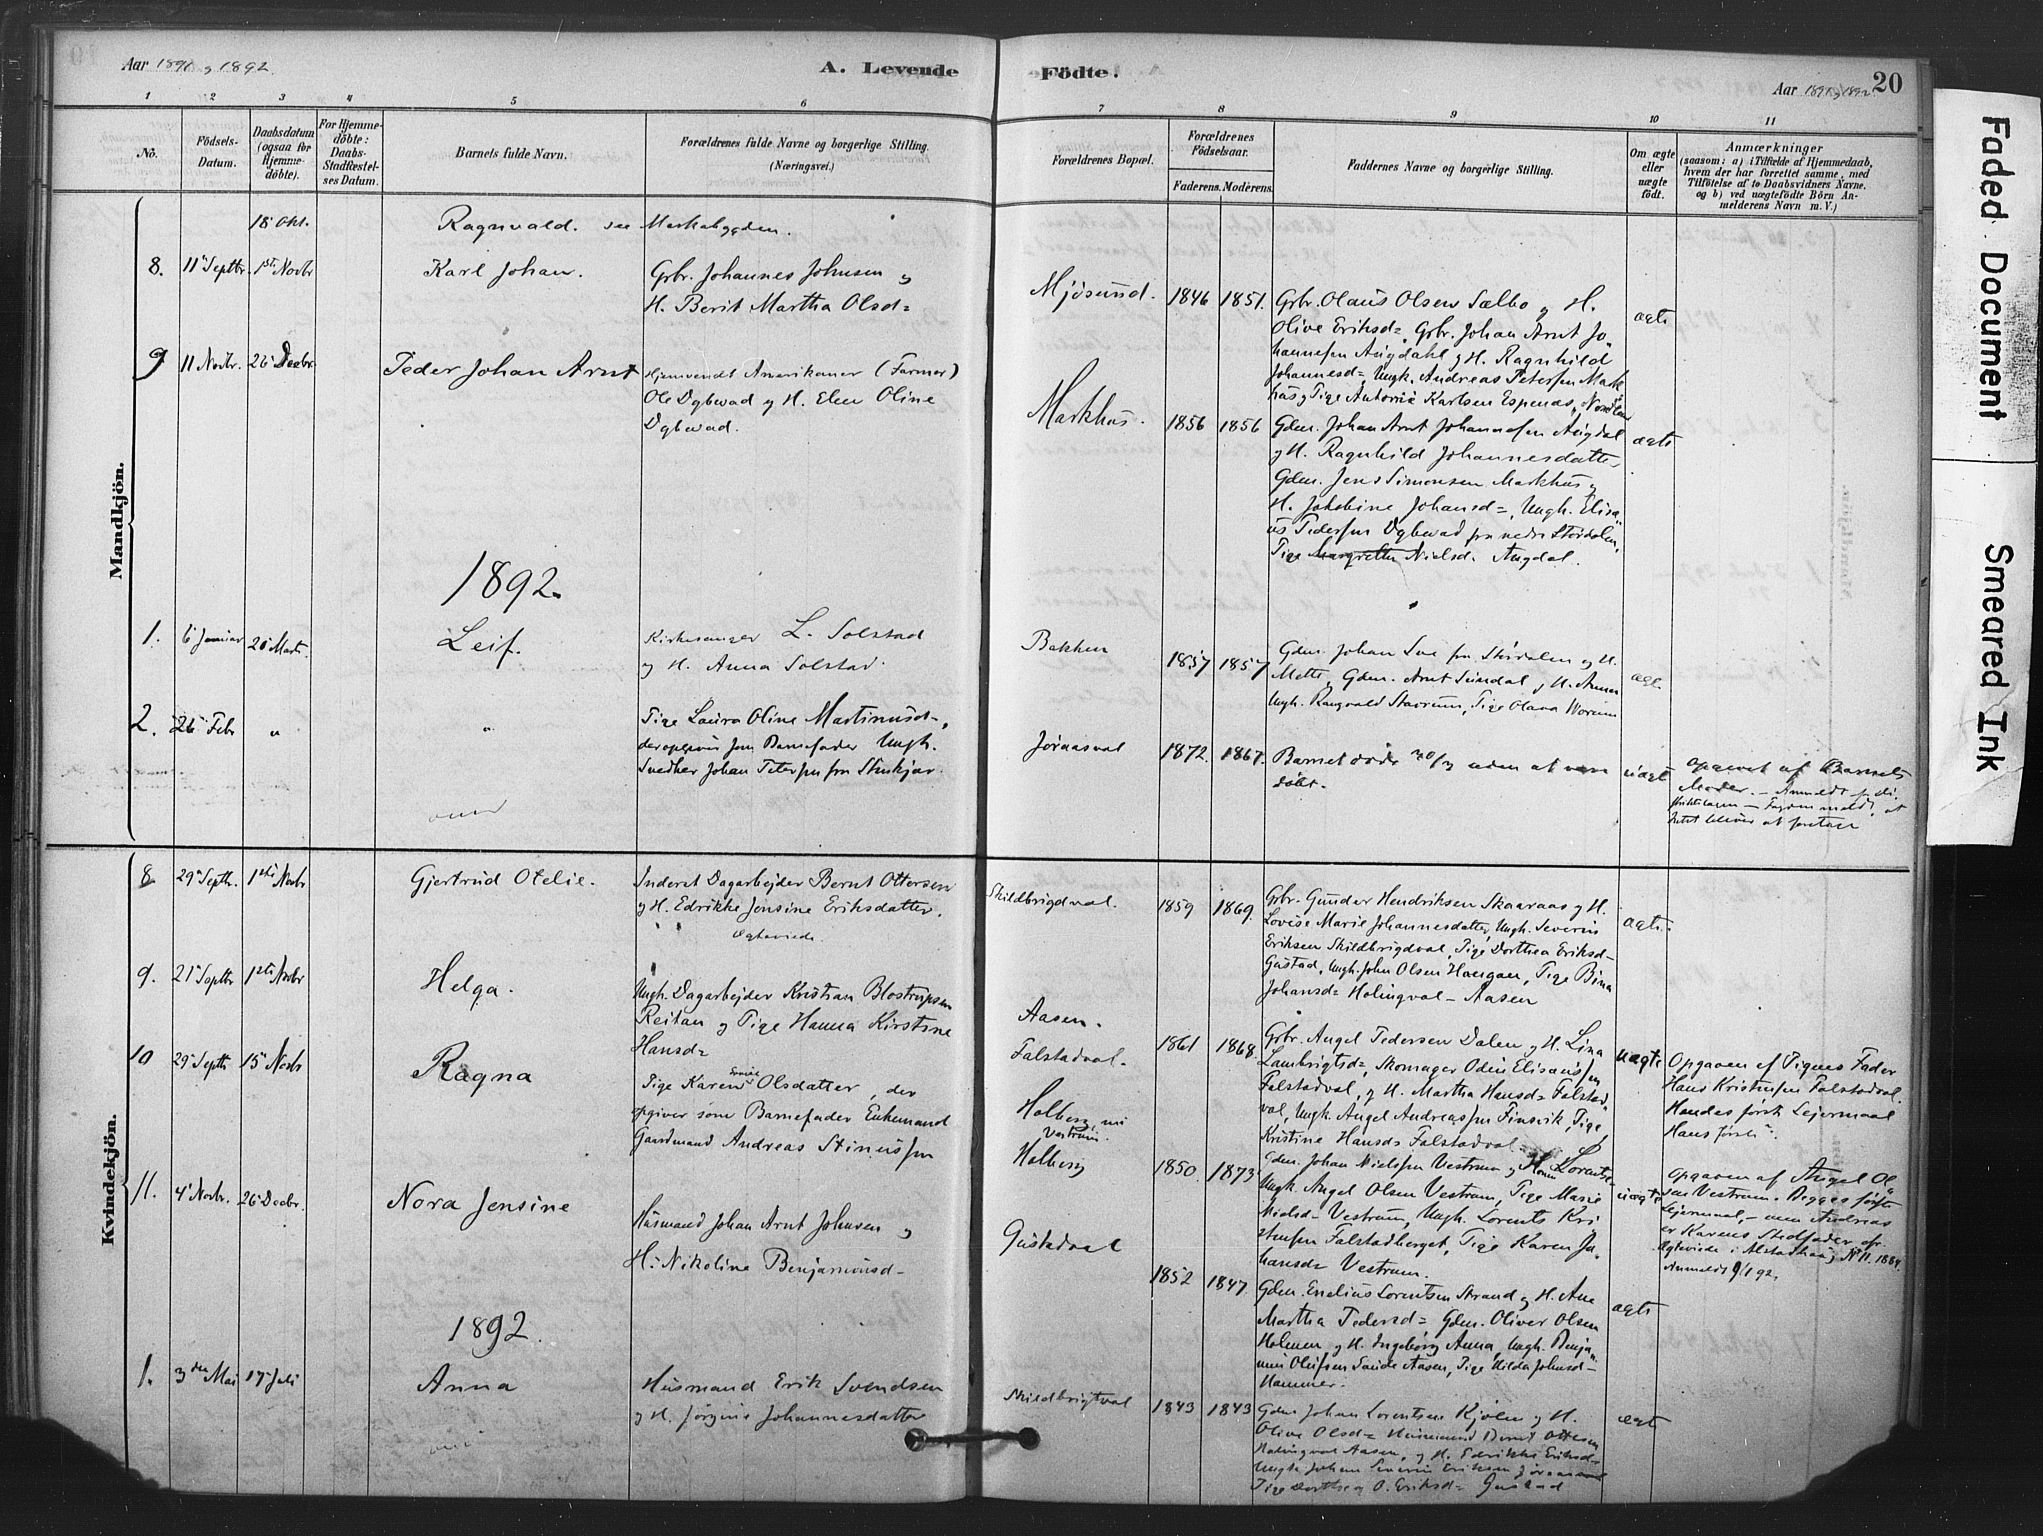 Aar 1891 og 1892.
A. Levende Födte.
Aar 1891 og 1892
20
1 2 3 4 5 6 7 8 9 10 11
No.
Födsels-
Datum.
Daabsdatum
(ogsaa for
Hjemme-
döbte).
For Hjemme-
döbte:
Daabs-
Stadfæstel-
ses Datum.
Barnets fulde Navn.
Forældrenes fulde Navne og borgerlige Stilling.
(Næringsvei.)
Forældrenes Bopæl.
Forældrenes
Födselsaar.
Faderens. Moderens.
Faddernes Navne og borgerlige Stilling.
Om ægte
eller
uægte
födt.
Anmærkninger
(saasom: a) i Tilfælde af Hjemmedaab,
hvem der har forrettet samme, med
Tilföielse af to Daabsvidners Navne.
og b) ved uægtefödte Börn An-
melderens Navn m. V.)
Mandkjön.
18 Okt.
Ragnvald. see Markabygden.
8. 11 Septbr. 1ste Novbr
Karl Johan.
Grbr. Johannes Johnsen og
H. Berit Martha Olsd=
Mjösund.
1846 1851.
Grbr. Olaus Olsen Sælbo og H.
Olive Eriksd=, Grbr. Johan Arnt Jo-
hannesen Augdahl og H. Ragnhild
Johannesd=, Ungk. Andreas Petersen Mark
hus og Pige Antonie Karlsen Espenæs,
ægte
9 11 Novbr. 26 Decbr.
Peder Johan Arnt
Hjemvendt Amerikaner (Farmer)
Ole Dybwad og H. Elen Oline
Dybwad.
Markhus.
1856 1856
Gdm. Johan Arnt Johannesen Augdal
og H. Ragnhild Johannesdatter
Gdm. Jens Simonsen Markhus og
H. Jakobine Johansd=, Ungk. Elisæ-
us Pedersen Dybwad fra nedre Stördalen,
Pige Margrethe Nielsd. Augdal.
ægte
1892.
1. 6 Januar 20 Marts.
Leif.
Kirkesanger L. Solstad
og H. Anna Solstad.
Bakken
1857 1857
Gdm. Johan Sve fra Stördalen og H.
Mette, Gdm. Arnt Sundal og H. Anna
Ungk. Ragnvald Stavrum, Pige Olava Worum
ægte
2. 26 Febr "
"
Pige Laura Oline Martinusd=,
der opgiver som Barnefader Ungk.
Snedker Johan Petersen fra Stenkjær.
Jöraasval
1872. 1867.
Barnet döde uden at være
döbt.
uægte
opgivet af Barnets
Moder.
Kvindekjön.
8 29 Septbr. 1ste Novbr
Gjertrud Otelie.
Inderst Dagarbejder Bernt Ottersen
og H. Edrikke Jensine Eriksdatter.
Egteviede.
Skildbrigdval.
1859 1869.
Grbr. Gunder Hendriksen Skaaraas og H.
Lovise Marie Johannesdatter, Ungk. Severin
Eriksen Skildbrigdval, Pige Dorthea Eriksd=
Gustad, Ungk. John Olsen Haugan, Pige Bina
Johansd= Holingval - Aasen
ægte
9. 21 Septbr 1ste Novbr
Helga.
Ungk. Dagarbejder Kristian Blostrupsen
Reitan og Pige Hanna Kirstine
Hansd=
Aasen.
Falstadval.
1861 1868.
Grbr. Angel Pedersen Dalen og H. Lina
Lambrigtsd=, Skomager Odin Elisæussen
Falstadval, og H. Martha Hansd= Falstad
val, Ungk. Angel Andreassen Finsvik, Pige
Kristine Hansd= Falstadval
uægte
Opgaven af Pigens Fader
Hans Kristensen Falstadval.
Hendes förste Lejermaal
Hans förste.
10 29 Septbr 15 Novbr
Ragna
Pige Karen Olsdatter, der
opgiver som Barnefader Enkemand
Gaardmand Andreas Stinussen
Holberg, nu
Vestrum.
Holberg
1850. 1873
Gdm. Johan Nielssen Vestrum og Lorentse
Ungk. Angel Olsen Vestrum, Pige Marie
Nielsd= Vestrum, Ungk. Lorents Kri
stensen Falstadberget, Pige Karen Jo-
hansd= Vestrum.
uægte
Opgaven af Angel Ol
sen Vestrum. Begges förste
Lejermaal, - men Andreas
er Karens Stedfader
Egteviede i Alstadhaug No 11. 1884.
Anmeldt 9/1 92.
11. 4 Novbr. 26 Decbr.
Nora Jensine
Husmand Johan Arnt Johnsen og
H. Nikoline Benjaminsd=
Gustadval
1852 1847.
Gdm. Enelius Lorentsen Strand og H. Ane
Martha Pedersd= Gdm. Oliver Olsen
Holmen og H. Ingeborg Anna, Ungk. Benja-
min Olufsen Sande Aasen, Pige Hilda Johnsd=
Hammer.
ægte
1892.
1. 3die Mai 17 Juli
Anna
Husmand Erik Svendsen
og H. Jörgine Johannesdatter
Skildbrigtval
1843 1843
Gdm. Johan Lorentsen Kjölen og H.
Olive Olsd= Husmand Bernt Ottesen
Holingval Aasen, og H. Edrikke Eriksd=
Ungk. Johan Severin Eriksen Jöraasval
Pige Dorthea O. Eriksd= Gustad
ægte
Faded Document
Smeared Ink